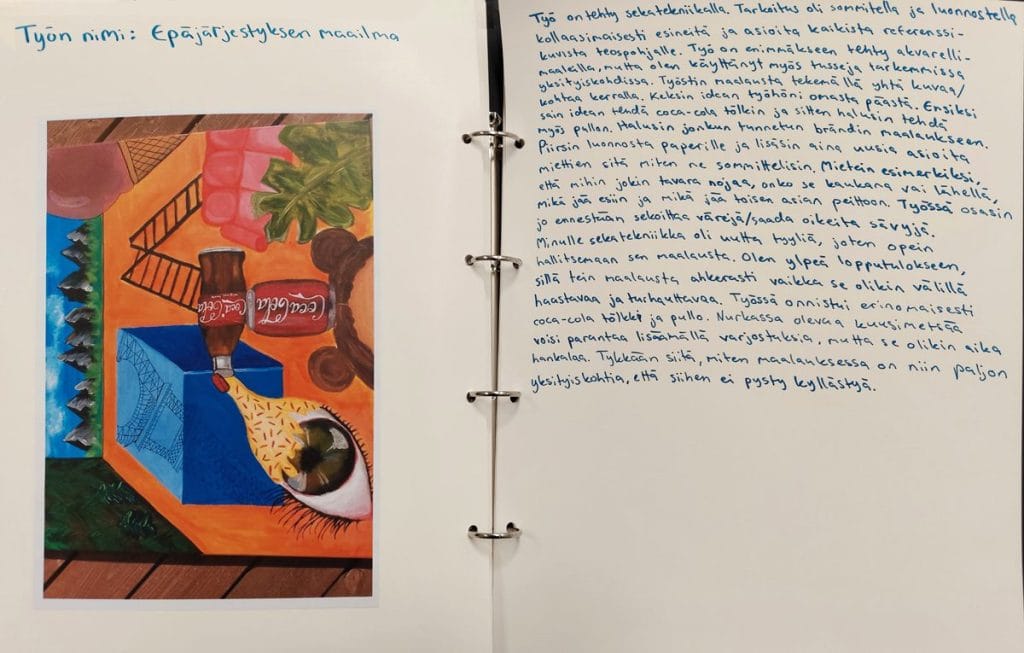 Työn nimi: Epäjärjestyksen maailma
Coca-Cola
Coca-Cola
Työ on tehty sekatekniikalla. Tarkoitus oli sommitella ja luonnostella
kollaasimaisesti esineitä ja asioita kaikista referenssi-
kuvista teospohjalle. Työ on enimmäkseen tehty akvarelli-
maaleilla, mutta olen käyttänyt myös tusseja tarkemmissa
yksityiskohdissa. Työstin maalausta tekemällä yhtä kuvaa/
kohtaa kerralla. Keksin idean työhöni omasta päästä. Ensiksi
sain idean tehdä coca-cola tölkin ja sitten halusin tehdä
myös pullon. Halusin jonkun tunnetun brändin maalaukseen.
Piirsin luonnosta paperille ja lisäsin aina uusia asioita
miettien sitä miten ne sommittelisin. Mietein esimerkiksi,
että mihin jokin tavara nojaa, onko se kaukana vai lähellä,
mikä jää esiin ja mikä jää toisen asian peittoon. Työssä osasin
jo ennestään sekoittaa värejä/saada oikeita sävyjä.
Minulle sekatekniikka oli uutta tyyliä, joten opein
hallitsemaan sen maalausta. Olen ylpeä lopputulokseen,
sillä tein maalausta ahkerasti vaikka se olikin välillä
haastavaa ja turhauttavaa. Työssä onnistui erinomaisesti
coca-cola tölkki ja pullo. Nurkassa olevaa kuusimetsää
voisi parantaa lisäämällä varjostuksia, mutta se olikin aika
hankalaa. Tykkään siitä, miten maalauksessa on niin paljon
yksityiskohtia, että siihen ei pysty kyllästyä.